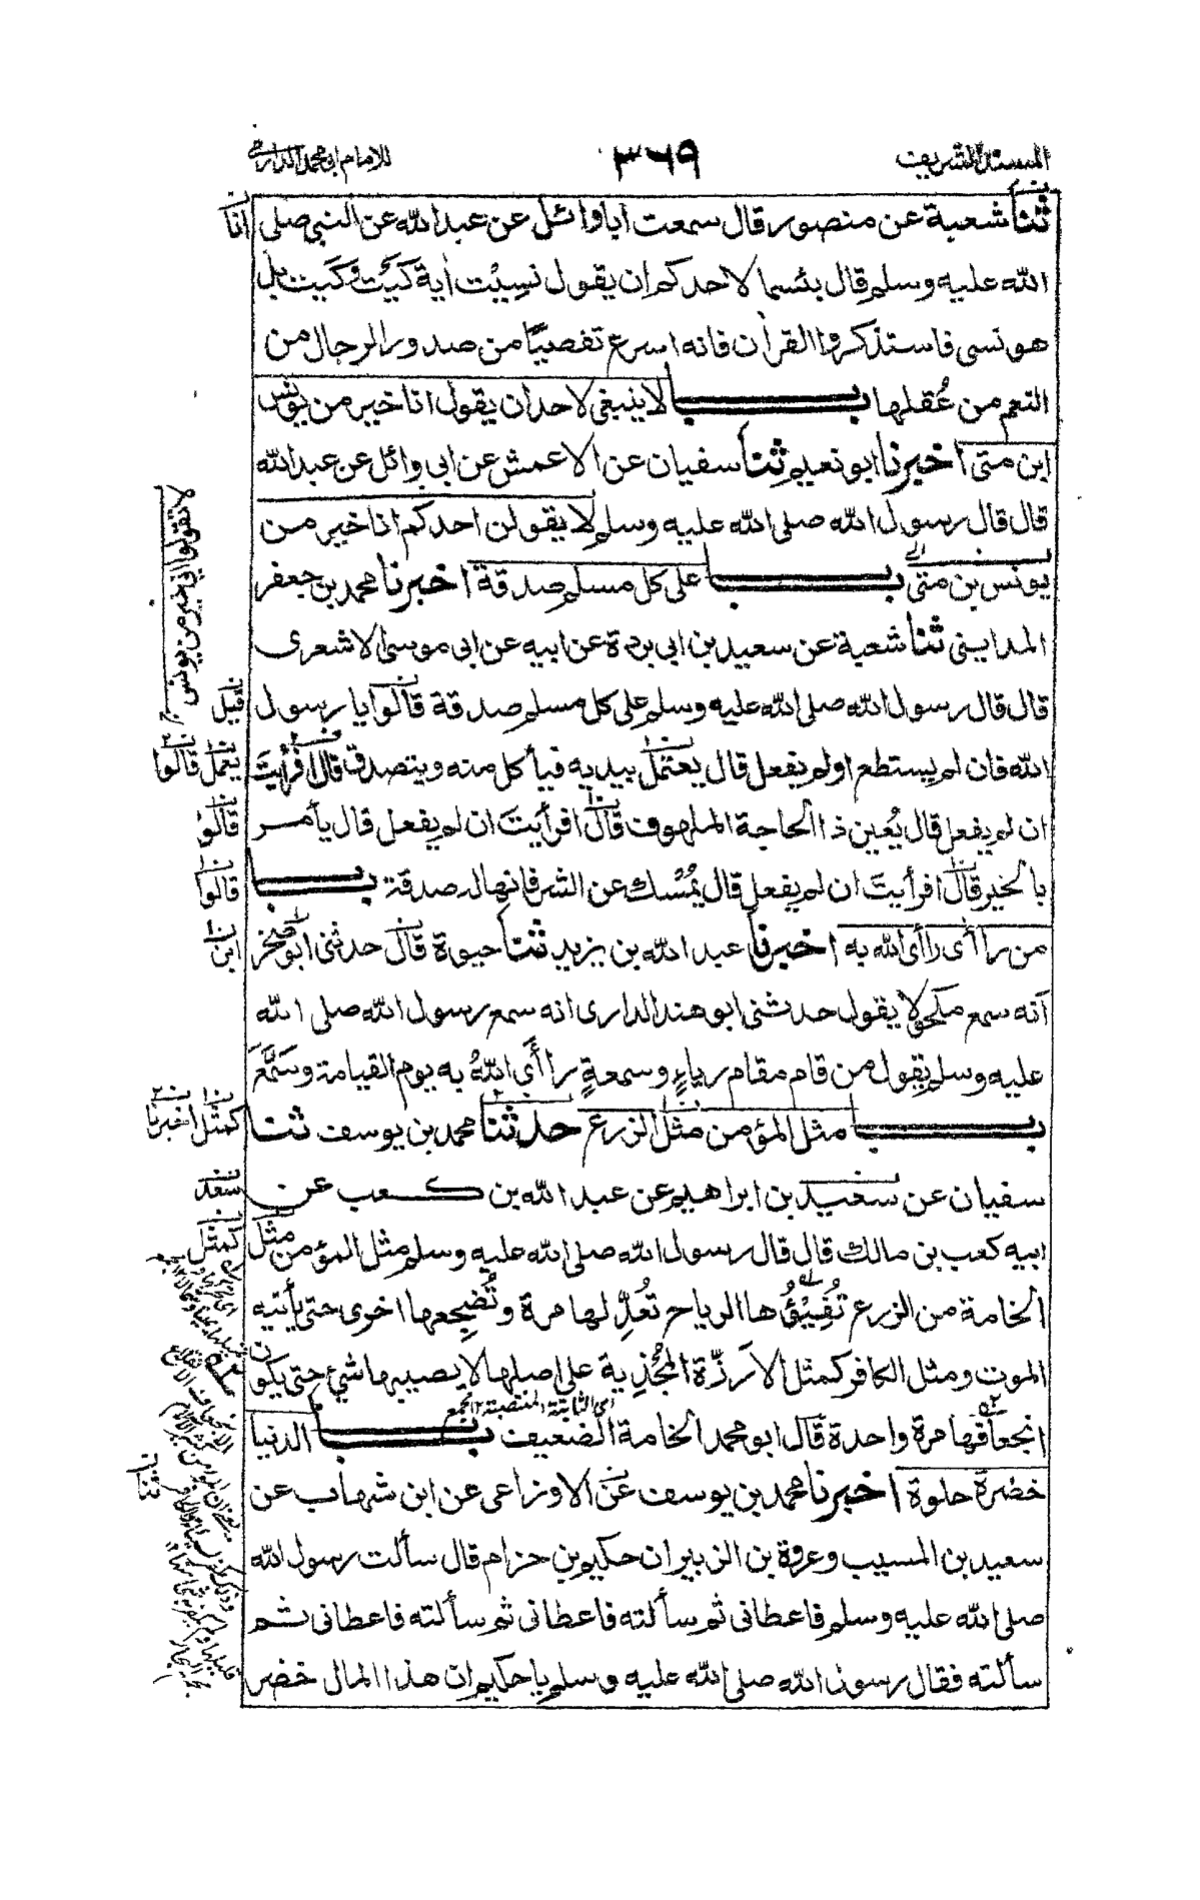 المسند الشريف ٣٦٩ للامام ابى محمد الدارمى
ثنا شعبة عن منصور قال سمعت ابا وائل عن عبد الله عن النبى صلى
الله عليه وسلم قال بئسما لاحدكم ان يقول نسِيْت اٰية كَيْتَ وكَيت بل
هو نسى فاستذكروا القراٰن فانه اسرع تفصيًا من صدور الرجال من
النعم من عُقلها باب لا ينبغى لاحد ان يقول انا خير من يونس
ابن متى اخبرنا ابو نعيم ثنا سفيان عن الاعمش عن ابى وائل عن عبد الله
قال قال رسول الله صلى الله عليه وسلم لا يقولن احدكم انا خير من
يونس بن متى باب على كل مسلم صدقة اخبرنا محمد بن جعفر
المداينى ثنا شعبة عن سعيد بن ابى بردة عن ابيه عن ابى موسى الاشعرى
قال قال رسول الله صلى الله عليه وسلم على كل مسلم صدقة قالوا يا رسول
الله فان لم يستطع او لم يفعل قال يعتمل بيديه فيأكل منه ويتصدق قال افرأيت
ان لم يفعل قال يُعين ذا الحاجة الملهوف قال افرأيتَ ان لم يفعل قال يأمر
بالخير قال افرأيتَ ان لم يفعل قال يُمْسك عن الشر فانها له صدقة باب
من راأى راأى الله به اخبرنا عبد الله بن يزيد ثنا حيوة قال حدثنى ابو صخر
انه سمع مكحولا يقول حدثنى ابو هند الدارى انه سمع رسول الله صلى الله
عليه وسلم يقول من قام مقام رياءٍ وسمعةٍ راأَى اللهُ به يوم القيامة وسَمَّعَ
باب مثل المؤمن مثل الزرع حدثنا محمد بن يوسف ثنا
سفيان عن سعيد بن ابراهيم عن عبد الله بن كعب عن
ابيه كعب بن مالك قال قال رسول الله صلى الله عليه وسلم مثل المؤمن مثل
الخامة من الزرع تُفِيْئُها الرياح تُعَدِّلها مرة وتُضجِعها اخرى حتى يأتيه
الموت ومثل الكافر كمثل الارزّة المُجْذِية على اصلها لا يصيبها شئ حتى يكون
انجعافها مرة واحدة قال ابو محمد الخامة الضعيف باب الدنيا
خضرة حلوة اخبرنا محمد بن يوسف عن الاوزاعى عن ابن شهاب عن
سعيد بن المسيب وعروة بن الزبير ان حكيم بن حزام قال سألت رسول الله
صلى الله عليه وسلم فاعطانى ثم سألته فاعطانى ثم سألته فاعطانى ثم
سألته فقال رسول الله صلى الله عليه وسلم يا حكيم ان هذا المال خضر
انا
لا تقولوا انى خير من يونس
قيل
يعمل قالوا
قالوا
قالوا
ابن
كمثل اخبرنا
سعد
كمثل
اى الثابتة المنتصبة
ثنا